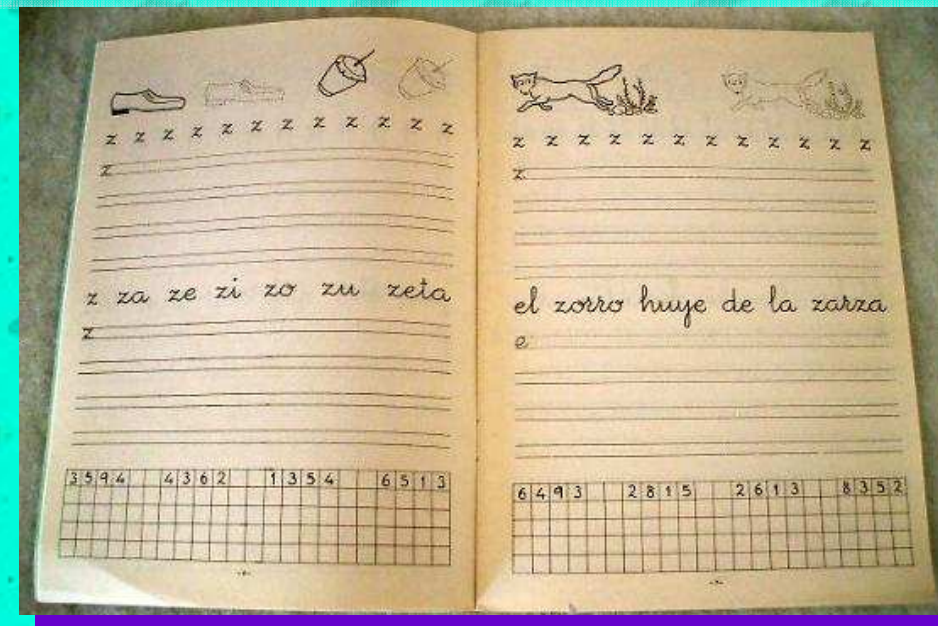 z z z z z z z z z z z z
z
z za ze zi zo zu zeta
z
3 5 9 4 4 3 6 2 1 3 5 4 6 5 1 3
z z z z z z z z z z z z
z
el zorro huye de la zarza
e
6 4 9 3 2 8 1 5 2 6 1 3 8 3 5 2